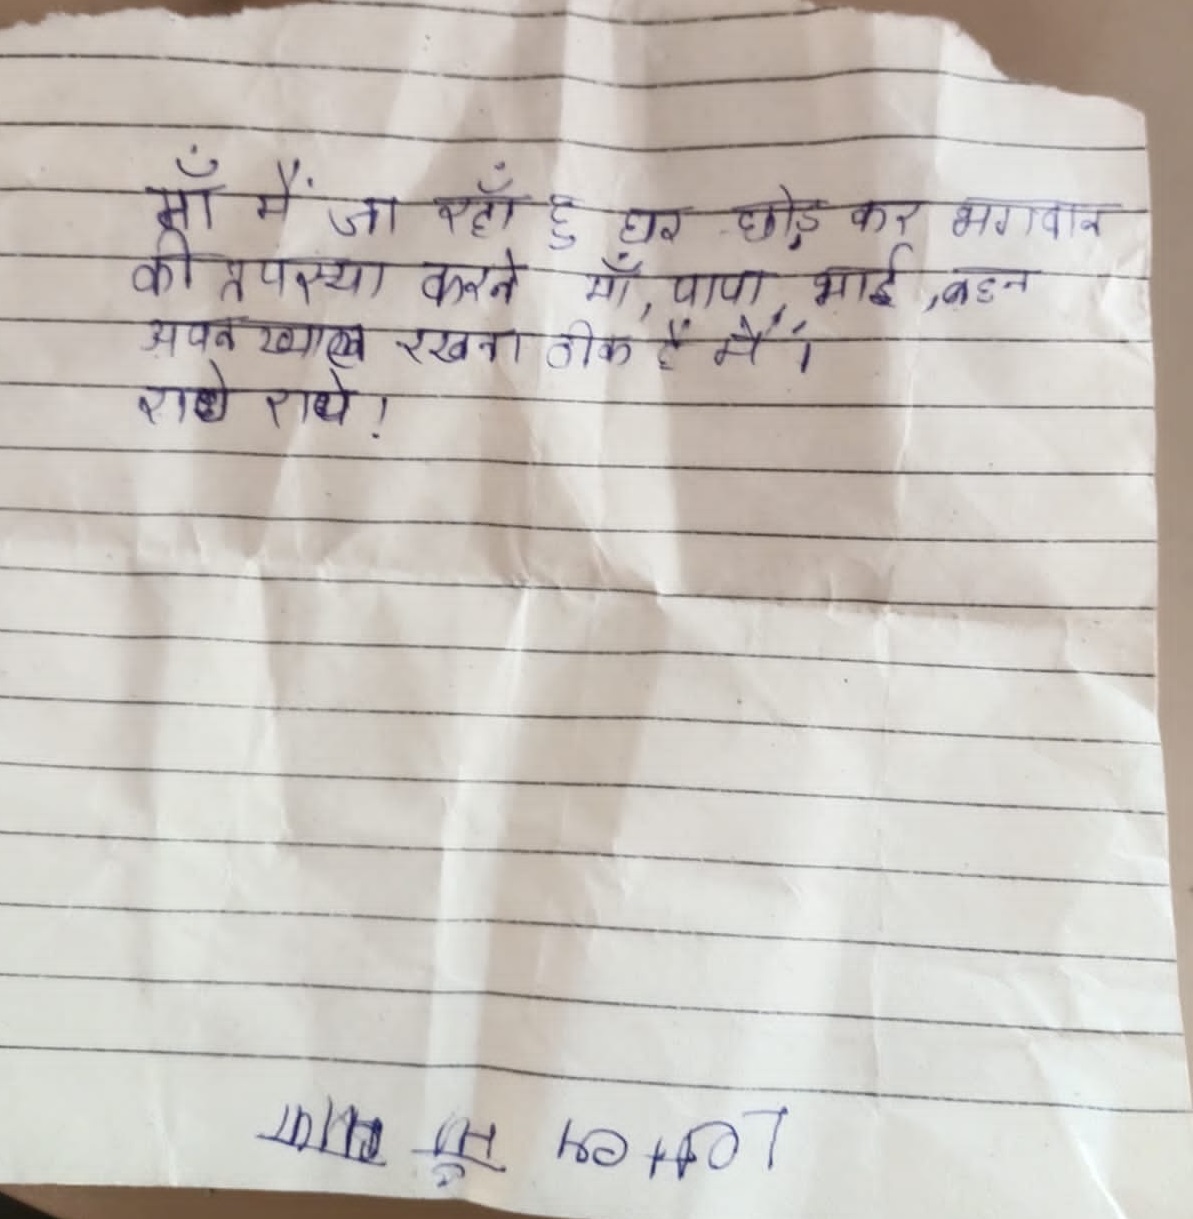 माँ मैं जा रहाँ हु घर छोड़ कर भगवान
की तपस्या करने माँ, पापा, भाई, बहन
अपन ख्याल रखना ठीक हैं मैं।
राधे राधे!
माँ